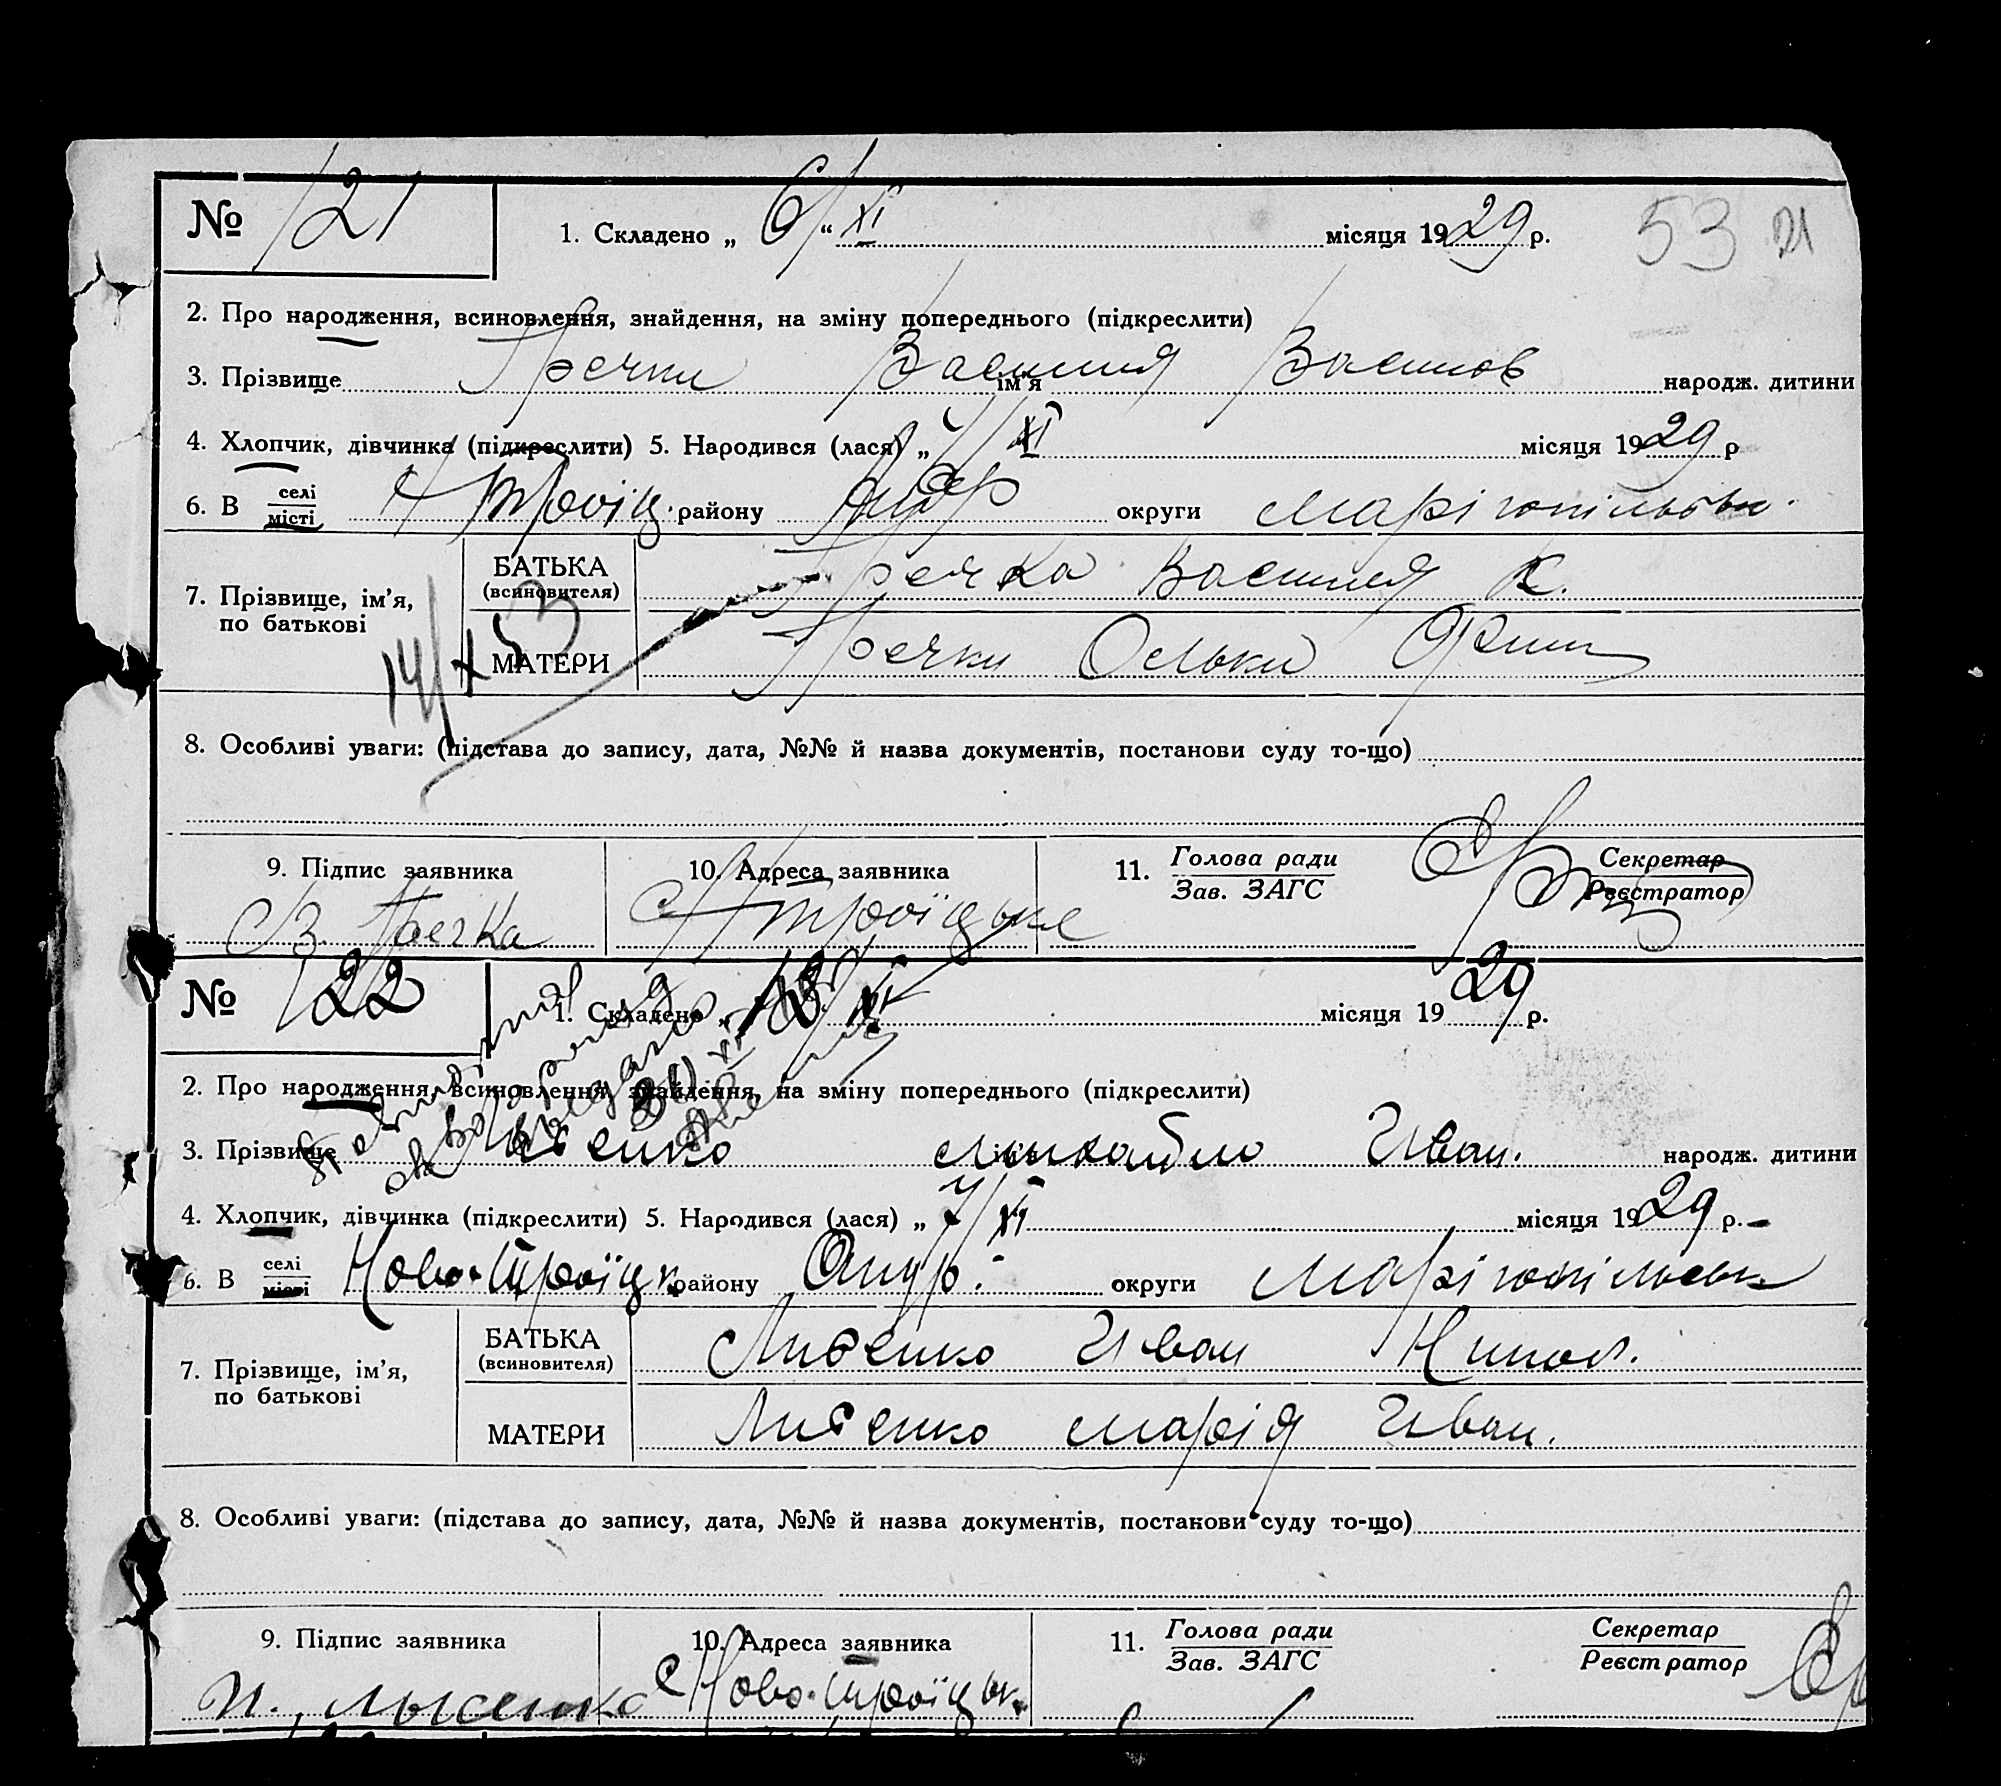 № 121 1. Складено „ 6 “ XI місяця 1929 р. 53
2. Про народження, всиновлення, знайдення, на зміну попереднього (підкреслити)
3. Прізвище Гречки Василия ім'я Васильов народж. дитини
4. Хлопчик, дівчинка (підкреслити) 5. Народився (лася) „ XI місяця 1929 р
6. В селі місті Н Троїц. району округи Маріюпільськ.
7. Прізвище, ім'я, по батькові
БАТЬКА (всиновителя) Гречка Василия К.
МАТЕРИ Гречки Ольки
8. Особливі уваги: (підстава до запису, дата, №№ й назва документів, постанови суду то-що)
9. Підпис заявника 10. Адреса заявника 11. Голова ради Зав. ЗАГС Секретар Реєстратор
В. Гречка с Н Троїцьке
№ 122 1. Складено „ XI місяця 1929 р.
2. Про народження, всиновлення, знайдення, на зміну попереднього (підкреслити)
3. Прізвище Михайло Иван. народж. дитини
4. Хлопчик, дівчинка (підкреслити) 5. Народився (лася) „ 7/XI місяця 1929 р.
6. В селі місті Ново-Троїцк району Ольгр. округи Маріюпільськ
7. Прізвище, ім'я, по батькові
БАТЬКА (всиновителя) Лисенко Иван Никол.
МАТЕРИ Лисенко Марія Иван.
8. Особливі уваги: (підстава до запису, дата, №№ й назва документів, постанови суду то-що)
9. Підпис заявника 10. Адреса заявника 11. Голова ради Зав. ЗАГС Секретар Реєстратор
И. Лысенко с Ново-Троїцьк.